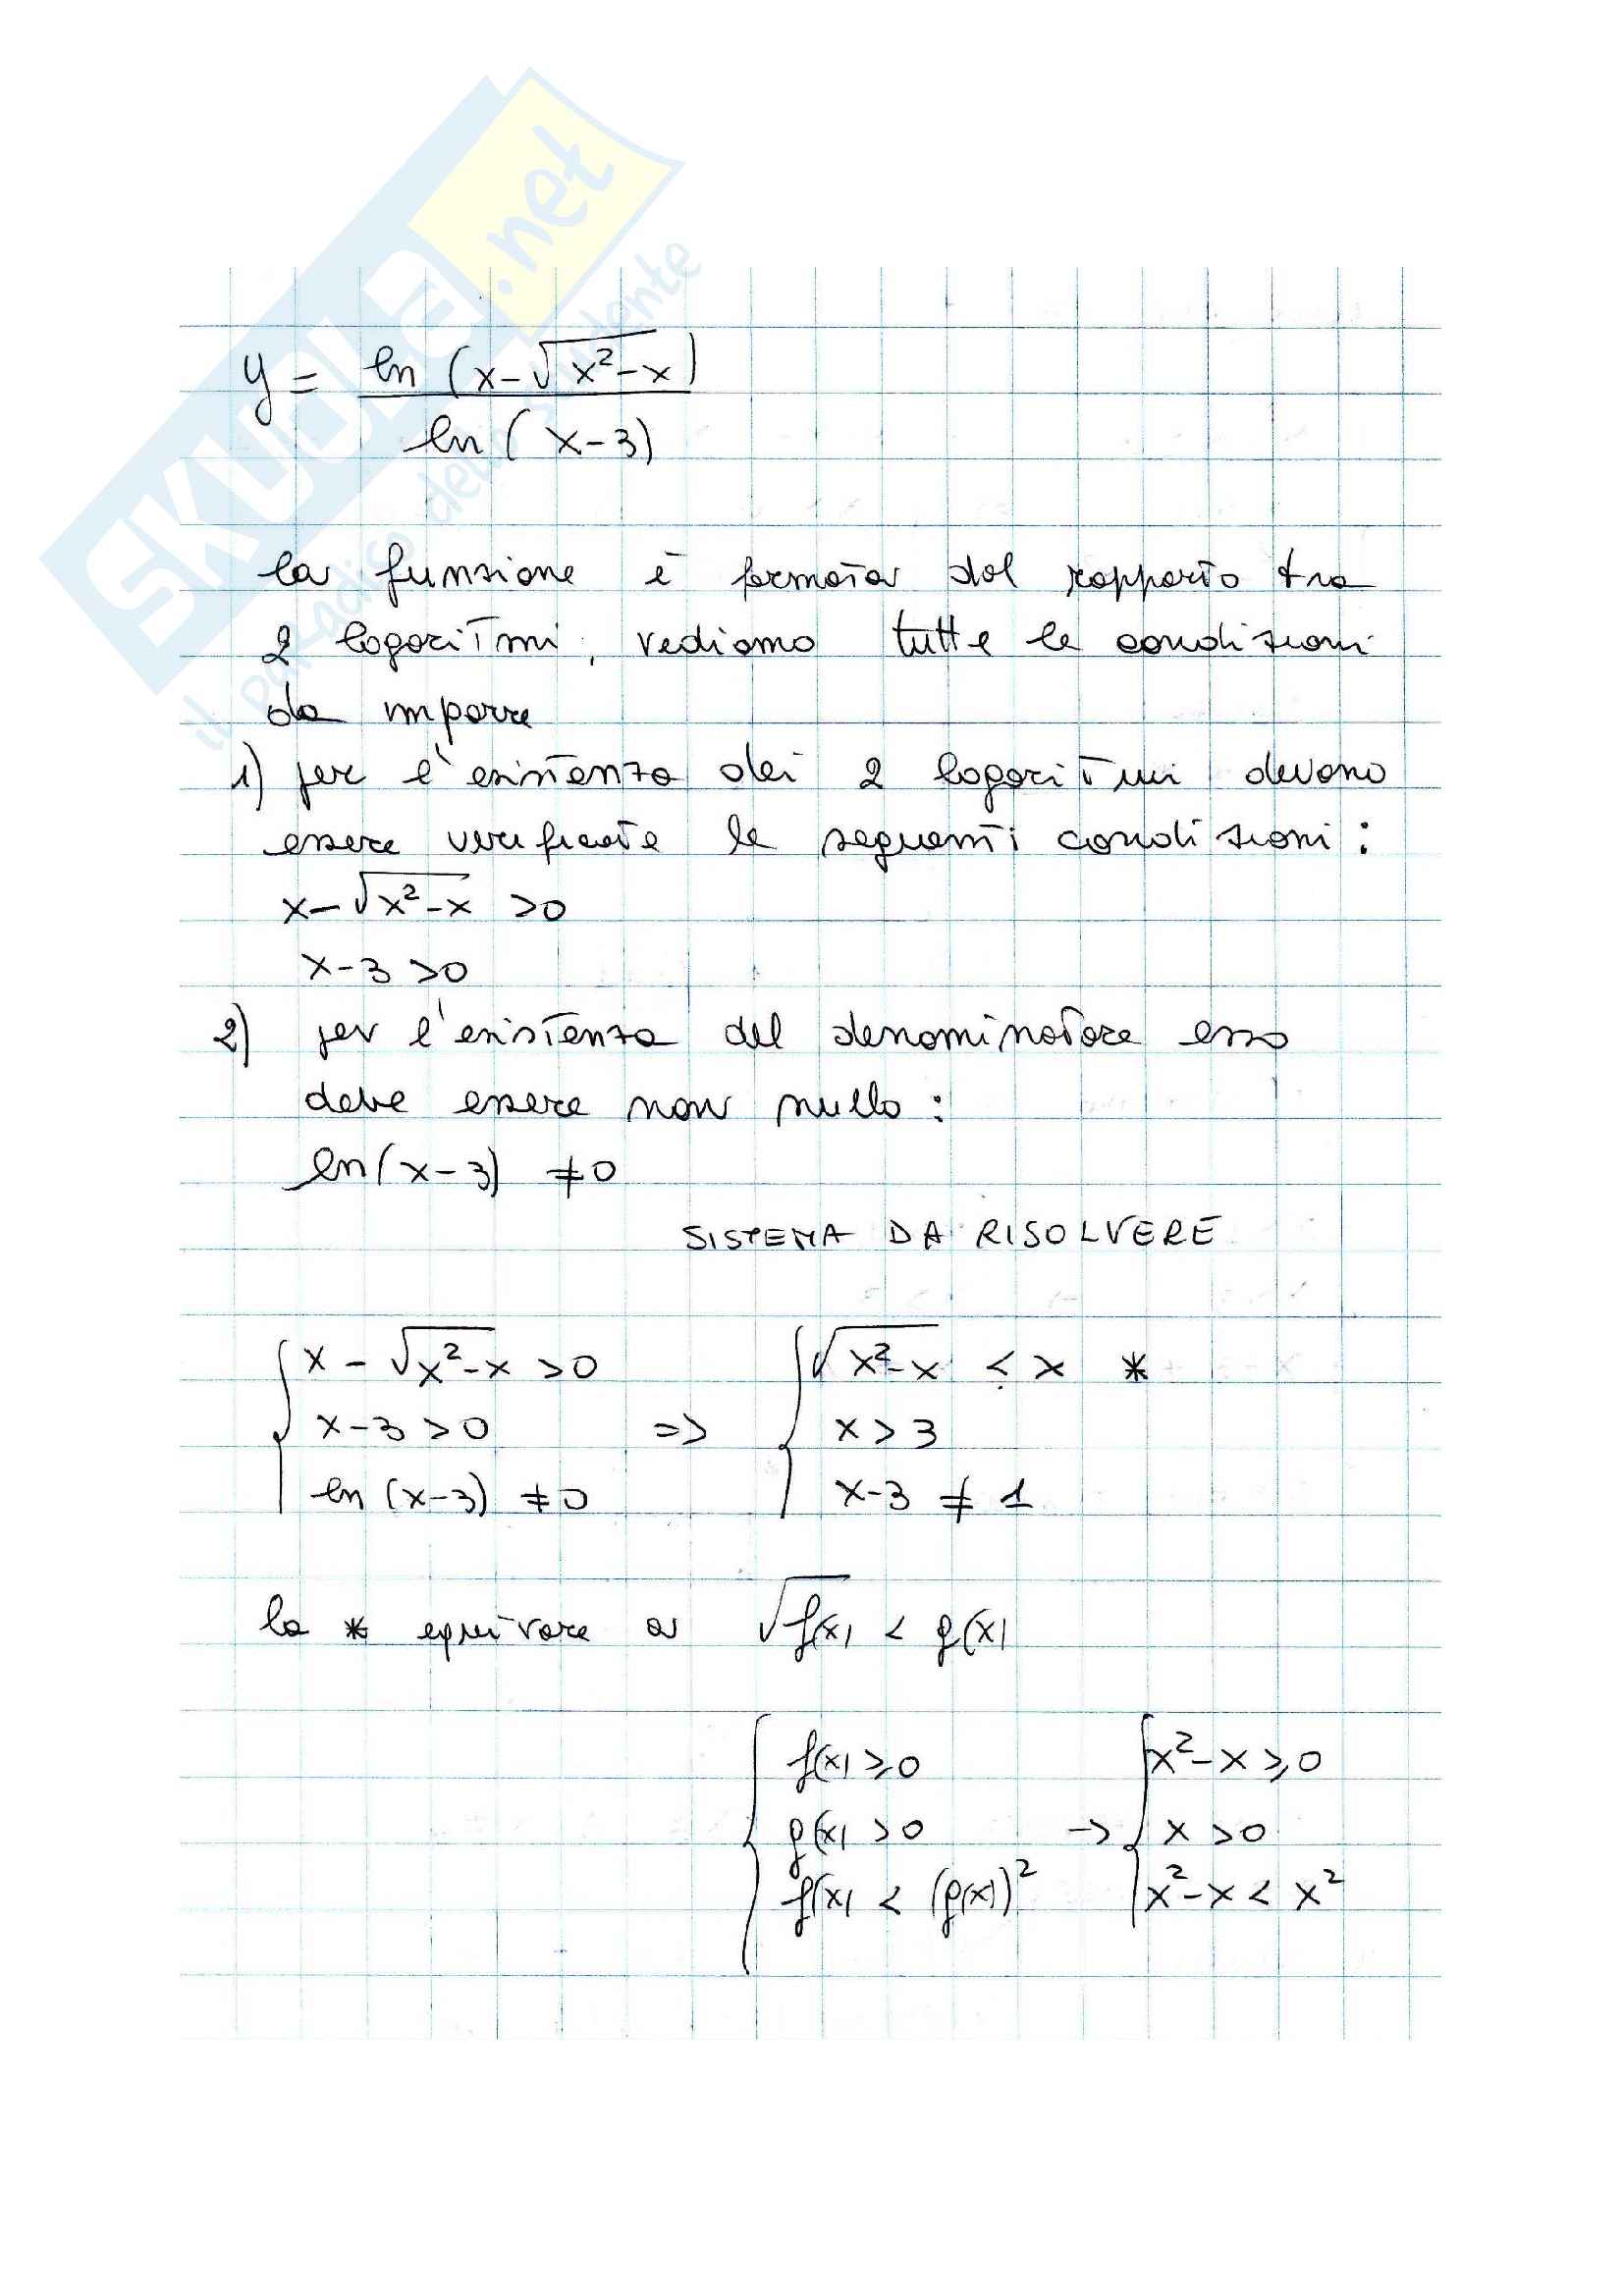 SKUOLA.net
il paradiso dello studente
y = ln (x-√x²-x)
ln (x-3)
la funzione è formata dal rapporto tra
2 logaritmi, vediamo tutte le condizioni
da imporre
1) per l'esistenza dei 2 logaritmi devono
essere verificate le seguenti condizioni:
x-√x²-x >0
x-3 >0
2) per l'esistenza del denominatore esso
deve essere non nullo:
ln(x-3) ≠0
SISTEMA DA RISOLVERE
{ x - √x²-x >0 => { √x²-x < x *
x-3 >0 x > 3
ln (x-3) ≠0 x-3 ≠ 1
la * equivare a √f(x) < g(x)
{ f(x) ≥0 → { x²-x ≥0
g(x) >0 x >0
f(x) < (g(x))² x²-x < x²